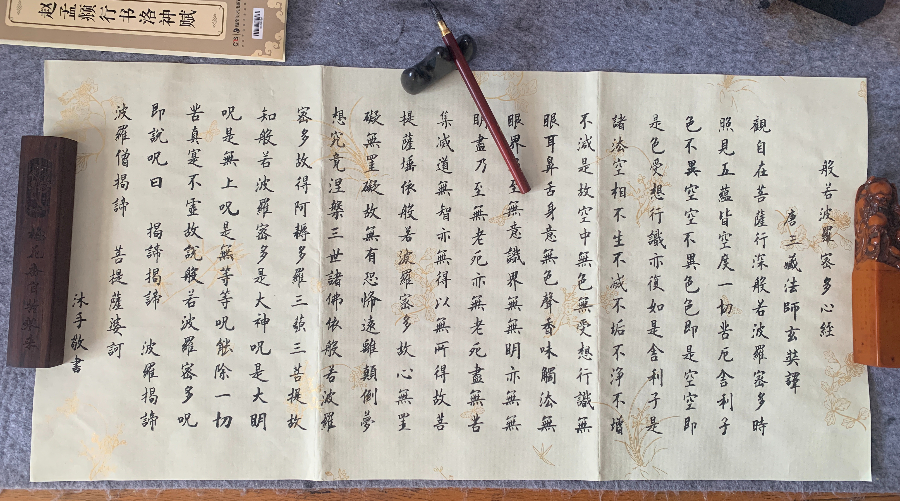 赵孟頫行书洛神赋
般若波羅密多心經
唐三藏法師玄奘譯
觀自在菩薩行深般若波羅密多時
照見五蘊皆空度一切苦厄舍利子
色不異空空不異色色即是空空即
是色受想行識亦復如是舍利子是
諸法空相不生不滅不垢不淨不增
不減是故空中無色無受想行識無
眼耳鼻舌身意無色聲香味觸法無
眼界至無意識界無無明亦無無
明盡乃至無老死亦無老死盡無苦
集滅道無智亦無得以無所得故菩
提薩埵依般若波羅密多故心無罣
礙無罣礙故無有恐怖遠離顛倒夢
想究竟涅槃三世諸佛依般若波羅
密多故得阿耨多羅三藐三菩提故
知般若波羅密多是大神呪是大明
呪是無上呪是無等等呪能除一切
苦真實不虛故說般若波羅密多呪
即說呪曰 揭諦揭諦 波羅揭諦
波羅僧揭諦 菩提薩婆訶
沐手敬書